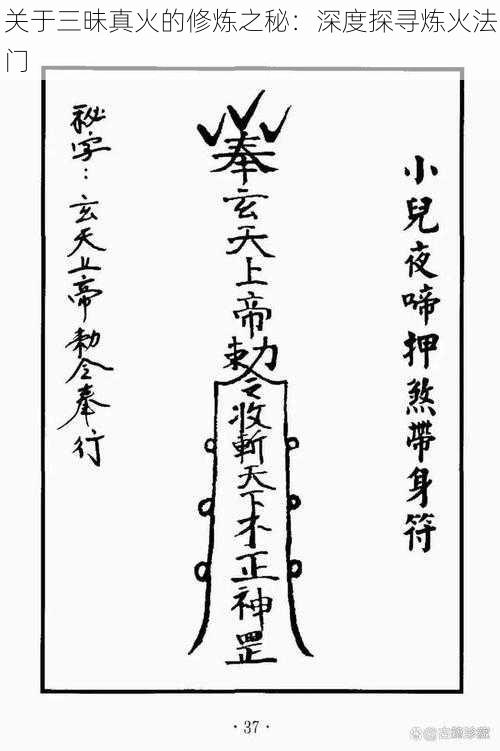 关于三昧真火的修炼之秘：深度探寻炼火法
门
小兒夜啼押煞帶身符
奉玄天上帝勅令收斬天下不正神罡
秘字：玄天上帝勅令奉行
·37·
古籍珍藏